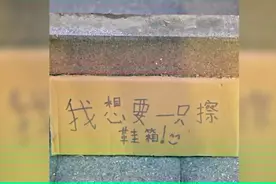 我想要一只擦
鞋箱!